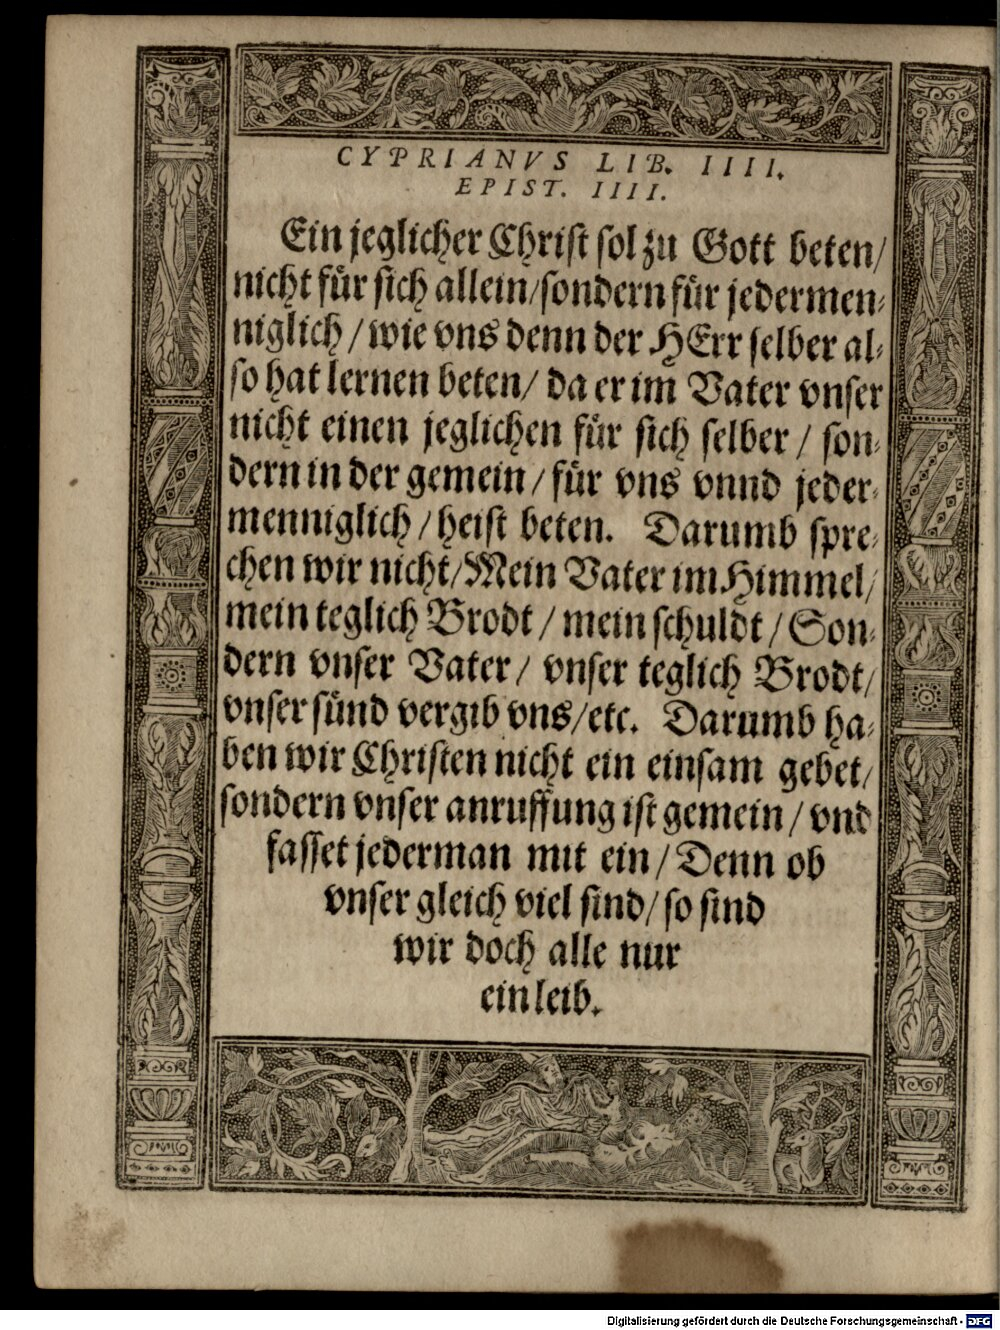 CYPRIANVS LIB. IIII.
EPIST. IIII.
Ein jeglicher Christ sol zu Gott beten/
nicht für sich allein/sondern für jedermen-
niglich/wie vns denn der HErr selber al-
so hat lernen beten/ da er im Vater vnser
nicht einen jeglichen für sich selber / son-
dern in der gemein/für vns vnnd jeder-
menniglich/heist beten. Darumb spre-
chen wir nicht/Mein Vater im Himmel/
mein teglich Brodt/mein schuldt/Son-
dern vnser Vater/ vnser teglich Brodt/
vnser sünd vergib vns/etc. Darumb ha-
ben wir Christen nicht ein einsam gebet/
sondern vnser anruffung ist gemein/vnd
fasset jederman mit ein/Denn ob
vnser gleich viel sind/so sind
wir doch alle nur
ein leib.
Digitalisierung gefördert durch die Deutsche Forschungsgemeinschaft - DFG